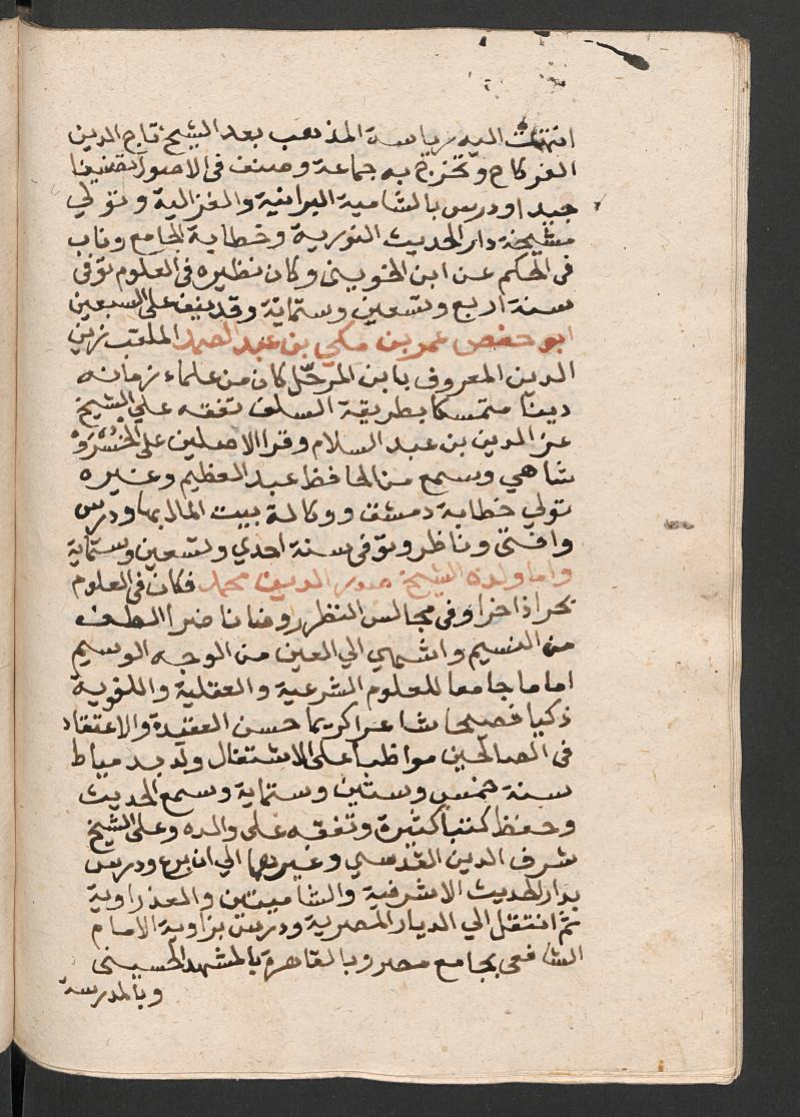 انتهت اليه رياسة المذهب بعد الشيخ تاج الدين
الفركاح وتخرج به جماعة وصنف في الاصول تصنيفا
جيدا ودرس بالشامية البرانية والغزالية وتولي
مشيخة دار الحديث النورية وخطابة الجامع وناب
في الحكم عن ابن الخويني وكان نظيره في العلوم توفي
سنة اربع وتسعين وستماية وقد نيف على السبعين
ابو حفص عمر بن مكي بن عبد الصمد الملقب بزين
الدين المعروف بابن المرحّل كان من علماء زمانه
دينا متمسكا بطريقة السلف تفقه علي الشيخ
عز الدين بن عبد السلام وقرا الاصلين على الخُسْرُوْ
شاهي وسمع من الحافظ عبد العظيم وغيره
تولي خطابة دمشق ووكالة بيت المال بها ودرس
وافتى وناظر وتوفي سنة احدي وتسعين وستماية
واما ولده الشيخ صدر الدين محمد فكان في العلوم
بحرا ذاخرا وفي مجالس النظر روضا ناضرا الطف
من النسيم واشهي الي العين من الوجه الوسيم
اماما جامعا للعلوم الشرعية والعقلية واللغوية
ذكيا فصيحا شاعرا كريما حسن العقيدة والاعتقاد
في الصالحين مواظبا على الاشتغال ولد بدمياط
سنة خمس وستين وستماية وسمع الحديث
وحفظ كتبا كثيرة وتفقه على والده وعلى الشيخ
شرف الدين القدسي وغيرهما الي ان برع ودرس
بدار الحديث الاشرفية والشاميتين والعذراوية
ثم انتقل الي الديار المصرية ودرس بزاوية الامام
الشافعي بجامع مصر وبالقاهرة بالمشهد الحسيني
وبالمدرسة